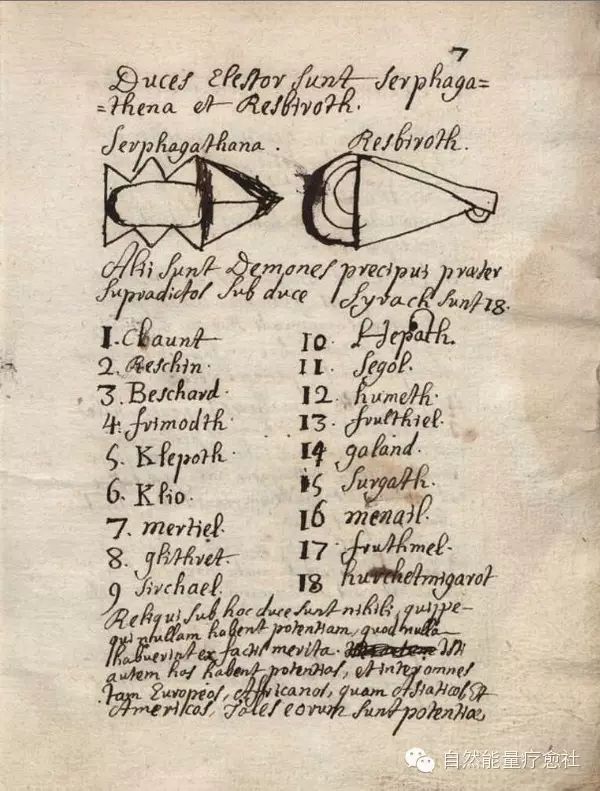 7
Duces Elestor sunt Serphaga=
=thena et Resbiroth.
Serphagathana. Resbiroth.
Alii sunt Demones precipui præter
supradictos sub duce Syrach sunt 18.
1. Claunt 10. Hepath.
2. Reschin. 11. Segol.
3. Beschard. 12. humeth.
4. frimodth. 13. frulthiel.
5. Klepoth. 14 galand.
6. Klio. 15 Surgath.
7. mertiel. 16 menail.
8. glithret. 17 fruthmel.
9 Sirchael. 18 hurchetmigarot
Reliqui sub hoc duce sunt nihili, quippe-
qui nullam habent potentiam, quod nulla
habuerint ex facti merita. isti
autem hos habent potentias, et inter omnes
tam Europeos, Africanos, quam Asiaticos Et
Americos, Tales eorum sunt potentiæ,
自然能量疗愈社